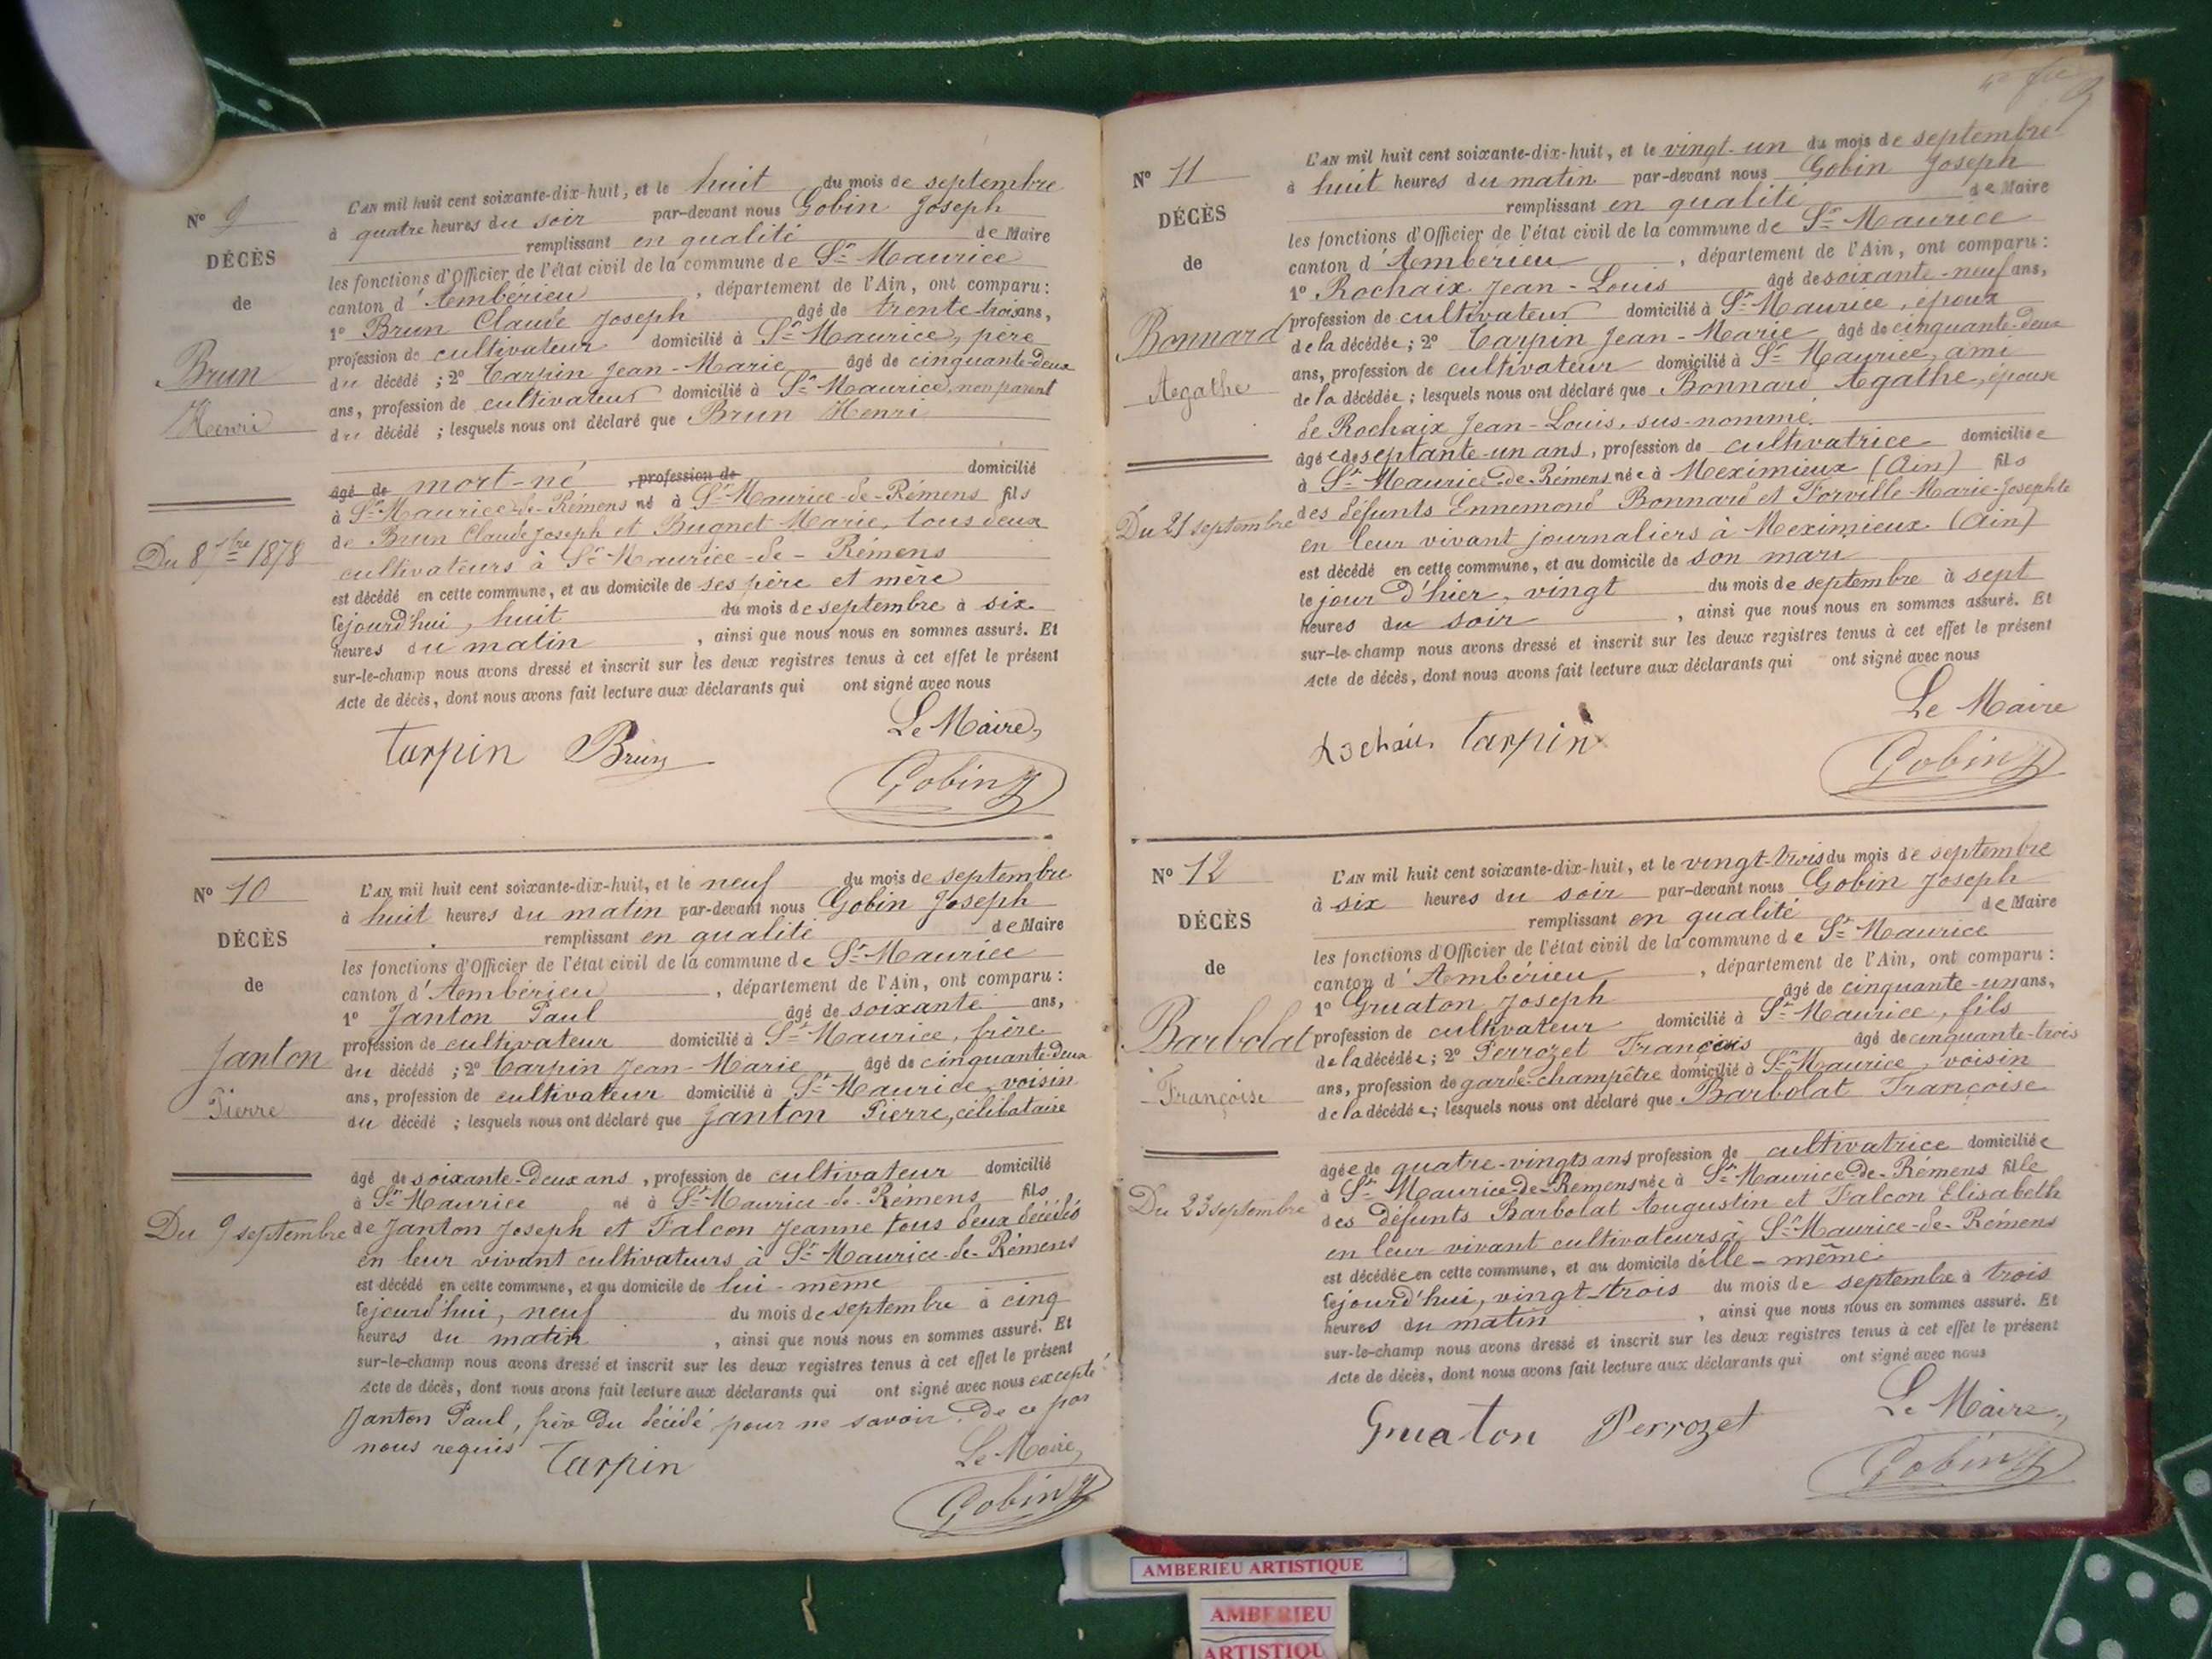 N° 9
DÉCÈS
de
Brun
Henri
Du 8 7bre 1878
L'AN mil huit cent soixante-dix-huit, et le huit du mois de septembre
à quatre heures du soir par-devant nous Gobin Joseph
remplissant en qualité de Maire
les fonctions d'Officier de l'état civil de la commune de St Maurice
canton d'Ambérieu, département de l'Ain, ont comparu :
1° Brun Claude Joseph âgé de trente-trois ans,
profession de cultivateur domicilié à St Maurice, père
du décédé ; 2° Tarpin Jean-Marie âgé de cinquante-deux
ans, profession de cultivateur domicilié à St Maurice, non parent
du décédé ; lesquels nous ont déclaré que Brun Henri
âgé de mort-né, profession de domicilié
à St Maurice-de-Rémens né à St Maurice-de-Rémens fils
de Brun Claude Joseph et Bugnet Marie, tous deux
cultivateurs à St Maurice-de-Rémens
est décédé en cette commune, et au domicile de ses père et mère
cejourd'hui, huit du mois de septembre à six
heures du matin, ainsi que nous nous en sommes assuré. Et
sur-le-champ nous avons dressé et inscrit sur les deux registres tenus à cet effet le présent
Acte de décès, dont nous avons fait lecture aux déclarants qui ont signé avec nous
Le Maire,
Tarpin Brun
Gobin J
N° 10
DÉCÈS
de
Janton
Pierre
Du 9 septembre
L'AN mil huit cent soixante-dix-huit, et le neuf du mois de septembre
à huit heures du matin par-devant nous Gobin Joseph
remplissant en qualité de Maire
les fonctions d'Officier de l'état civil de la commune de St Maurice
canton d'Ambérieu, département de l'Ain, ont comparu :
1° Janton Paul âgé de soixante ans,
profession de cultivateur domicilié à St Maurice, frère
du décédé ; 2° Tarpin Jean-Marie âgé de cinquante-deux
ans, profession de cultivateur domicilié à St Maurice, voisin
du décédé ; lesquels nous ont déclaré que Janton Pierre, célibataire
âgé de soixante-deux ans, profession de cultivateur domicilié
à St Maurice né à St Maurice-de-Rémens fils
de Janton Joseph et Falcon Jeanne tous deux décédés
en leur vivant cultivateurs à St Maurice-de-Rémens
est décédé en cette commune, et au domicile de lui-même
cejourd'hui, neuf du mois de septembre à cinq
heures du matin, ainsi que nous nous en sommes assuré. Et
sur-le-champ nous avons dressé et inscrit sur les deux registres tenus à cet effet le présent
Acte de décès, dont nous avons fait lecture aux déclarants qui ont signé avec nous excepté
Janton Paul, frère du décédé pour ne savoir. De ce par
nous requis
Tarpin Le Maire,
Gobin J
N° 11
DÉCÈS
de
Bonnard
Agathe
Du 21 septembre
L'AN mil huit cent soixante-dix-huit, et le vingt-un du mois de septembre
à huit heures du matin par-devant nous Gobin Joseph
remplissant en qualité de Maire
les fonctions d'Officier de l'état civil de la commune de St Maurice
canton d'Ambérieu, département de l'Ain, ont comparu :
1° Rochaix Jean-Louis âgé de soixante-neuf ans,
profession de cultivateur domicilié à St Maurice, époux
de la décédée ; 2° Tarpin Jean-Marie âgé de cinquante-deux
ans, profession de cultivateur domicilié à St Maurice, ami
de la décédée ; lesquels nous ont déclaré que Bonnard Agathe, épouse
de Rochaix Jean-Louis, sus-nommé.
âgée de septante-un ans, profession de cultivatrice domiciliée
à St Maurice-de-Rémens née à Meximieux (Ain) fils
des défunts Ennemond Bonnard et Forville Marie-Josephte
en leur vivant journaliers à Meximieux (Ain)
est décédé en cette commune, et au domicile de son mari
le jour d'hier, vingt du mois de septembre à sept
heures du soir, ainsi que nous nous en sommes assuré. Et
sur-le-champ nous avons dressé et inscrit sur les deux registres tenus à cet effet le présent
Acte de décès, dont nous avons fait lecture aux déclarants qui ont signé avec nous
Le Maire
Rochaix Tarpin
Gobin J
N° 12
DÉCÈS
de
Barbolat
Françoise
Du 23 septembre
L'AN mil huit cent soixante-dix-huit, et le vingt-trois du mois de septembre
à six heures du soir par-devant nous Gobin Joseph
remplissant en qualité de Maire
les fonctions d'Officier de l'état civil de la commune de St Maurice
canton d'Ambérieu, département de l'Ain, ont comparu :
1° Gruaton Joseph âgé de cinquante-un ans,
profession de cultivateur domicilié à St Maurice, fils
de la décédée ; 2° Perrozet François âgé de cinquante-trois
ans, profession de garde-champêtre domicilié à St Maurice, voisin
de la décédée ; lesquels nous ont déclaré que Barbolat Françoise
âgée de quatre-vingts ans profession de cultivatrice domiciliée
à St Maurice-de-Rémens née à St Maurice-de-Rémens fille
des défunts Barbolat Augustin et Falcon Elisabeth
en leur vivant cultivateurs à St Maurice-de-Rémens
est décédée en cette commune, et au domicile d'elle-même
cejourd'hui, vingt-trois du mois de septembre à trois
heures du matin, ainsi que nous nous en sommes assuré. Et
sur-le-champ nous avons dressé et inscrit sur les deux registres tenus à cet effet le présent
Acte de décès, dont nous avons fait lecture aux déclarants qui ont signé avec nous
Le Maire,
Gruaton Perrozet
Gobin J
AMBERIEU ARTISTIQUE
AMBERIEU
ARTISTIQU